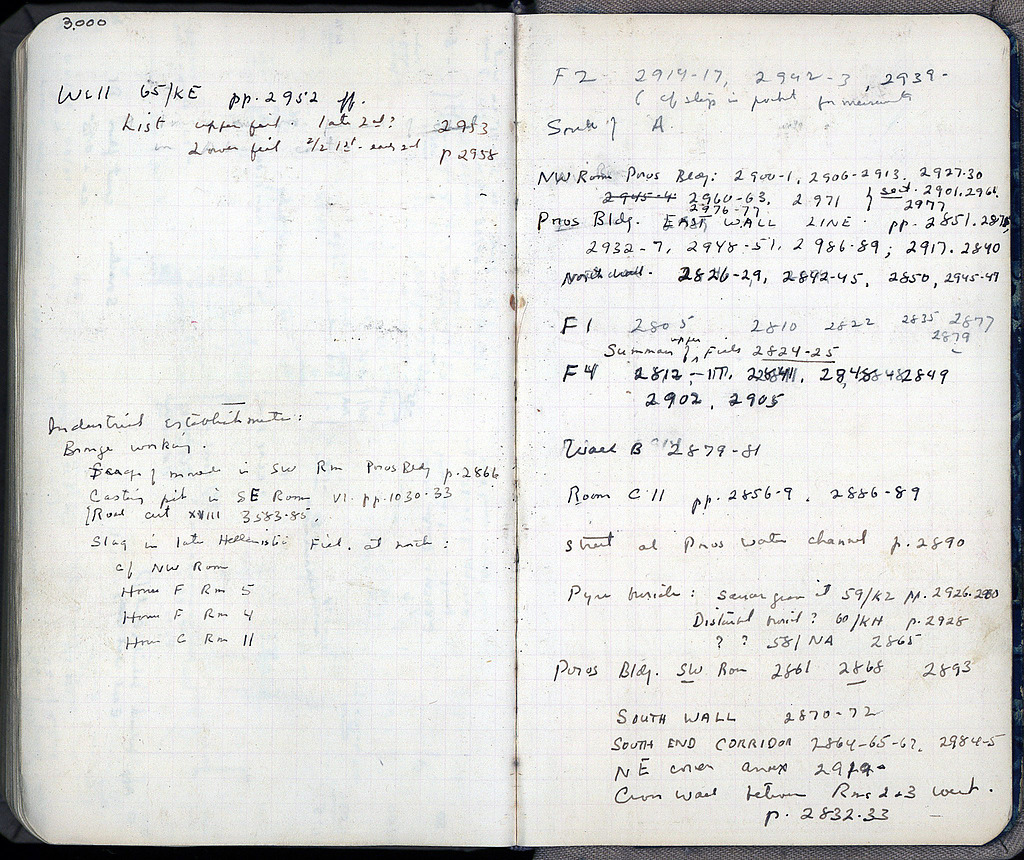 3.000
Well 65/KE pp. 2952 ff.
List upper fill. late 2nd? 2953
Lower fill 2/2 1st - early 2nd p 2958
Industrial Establishments:
Bronze working.
of moulds in SW Rm Poros Bldg p. 2866
Casting pit in SE Room VI. pp. 1030-33
Road cut XVIII 3583-85.
Slag in late Hellenistic Fill. at north:
cf NW Room
House F Rm 5
House F Rm 4
House C Rm 11
F2 2914-17, 2942-3, 2939-
(cf slip in pocket for measurements
South of A
NW Room Poros Bldg: 2900-1, 2906-2913. 2927-30
2945-4 2960-63. 2971 } sect. 2901.2961.
2976-77 2977
Poros Bldg. EAST WALL LINE. pp. 2851.
2932-7, 2948-51, 2986-89; 2917. 2840
North wall. 2826-29, 2842-45, 2850, 2945-47
F1 2805 2810 2822 2835 2877
2879
Summary of upper Fills 2824-25
F4 2812, 2849
2902, 2905
Wall B 2879-81
Room C 11 pp. 2856-9, 2886-89
Street at Poros water channel p. 2890
Pyre burials: 59/K2 pp. 2926.
Disturbed burial? 60/KH p. 2928
? ? 58/NA 2865
Poros Bldg. SW Room 2861 2868 2893
SOUTH WALL 2870-72
SOUTH END CORRIDOR 2864-65-67. 2984-5
NE corner annex
Cross wall between Rms 2+3 west.
p. 2832-33